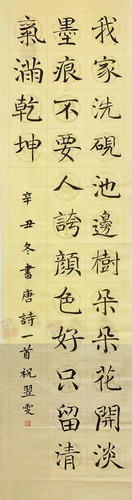 我家洗硯池邊樹朵朵花開淡
墨痕不要人誇顏色好只留清
氣滿乾坤
辛丑冬書唐詩一首祝翌雯